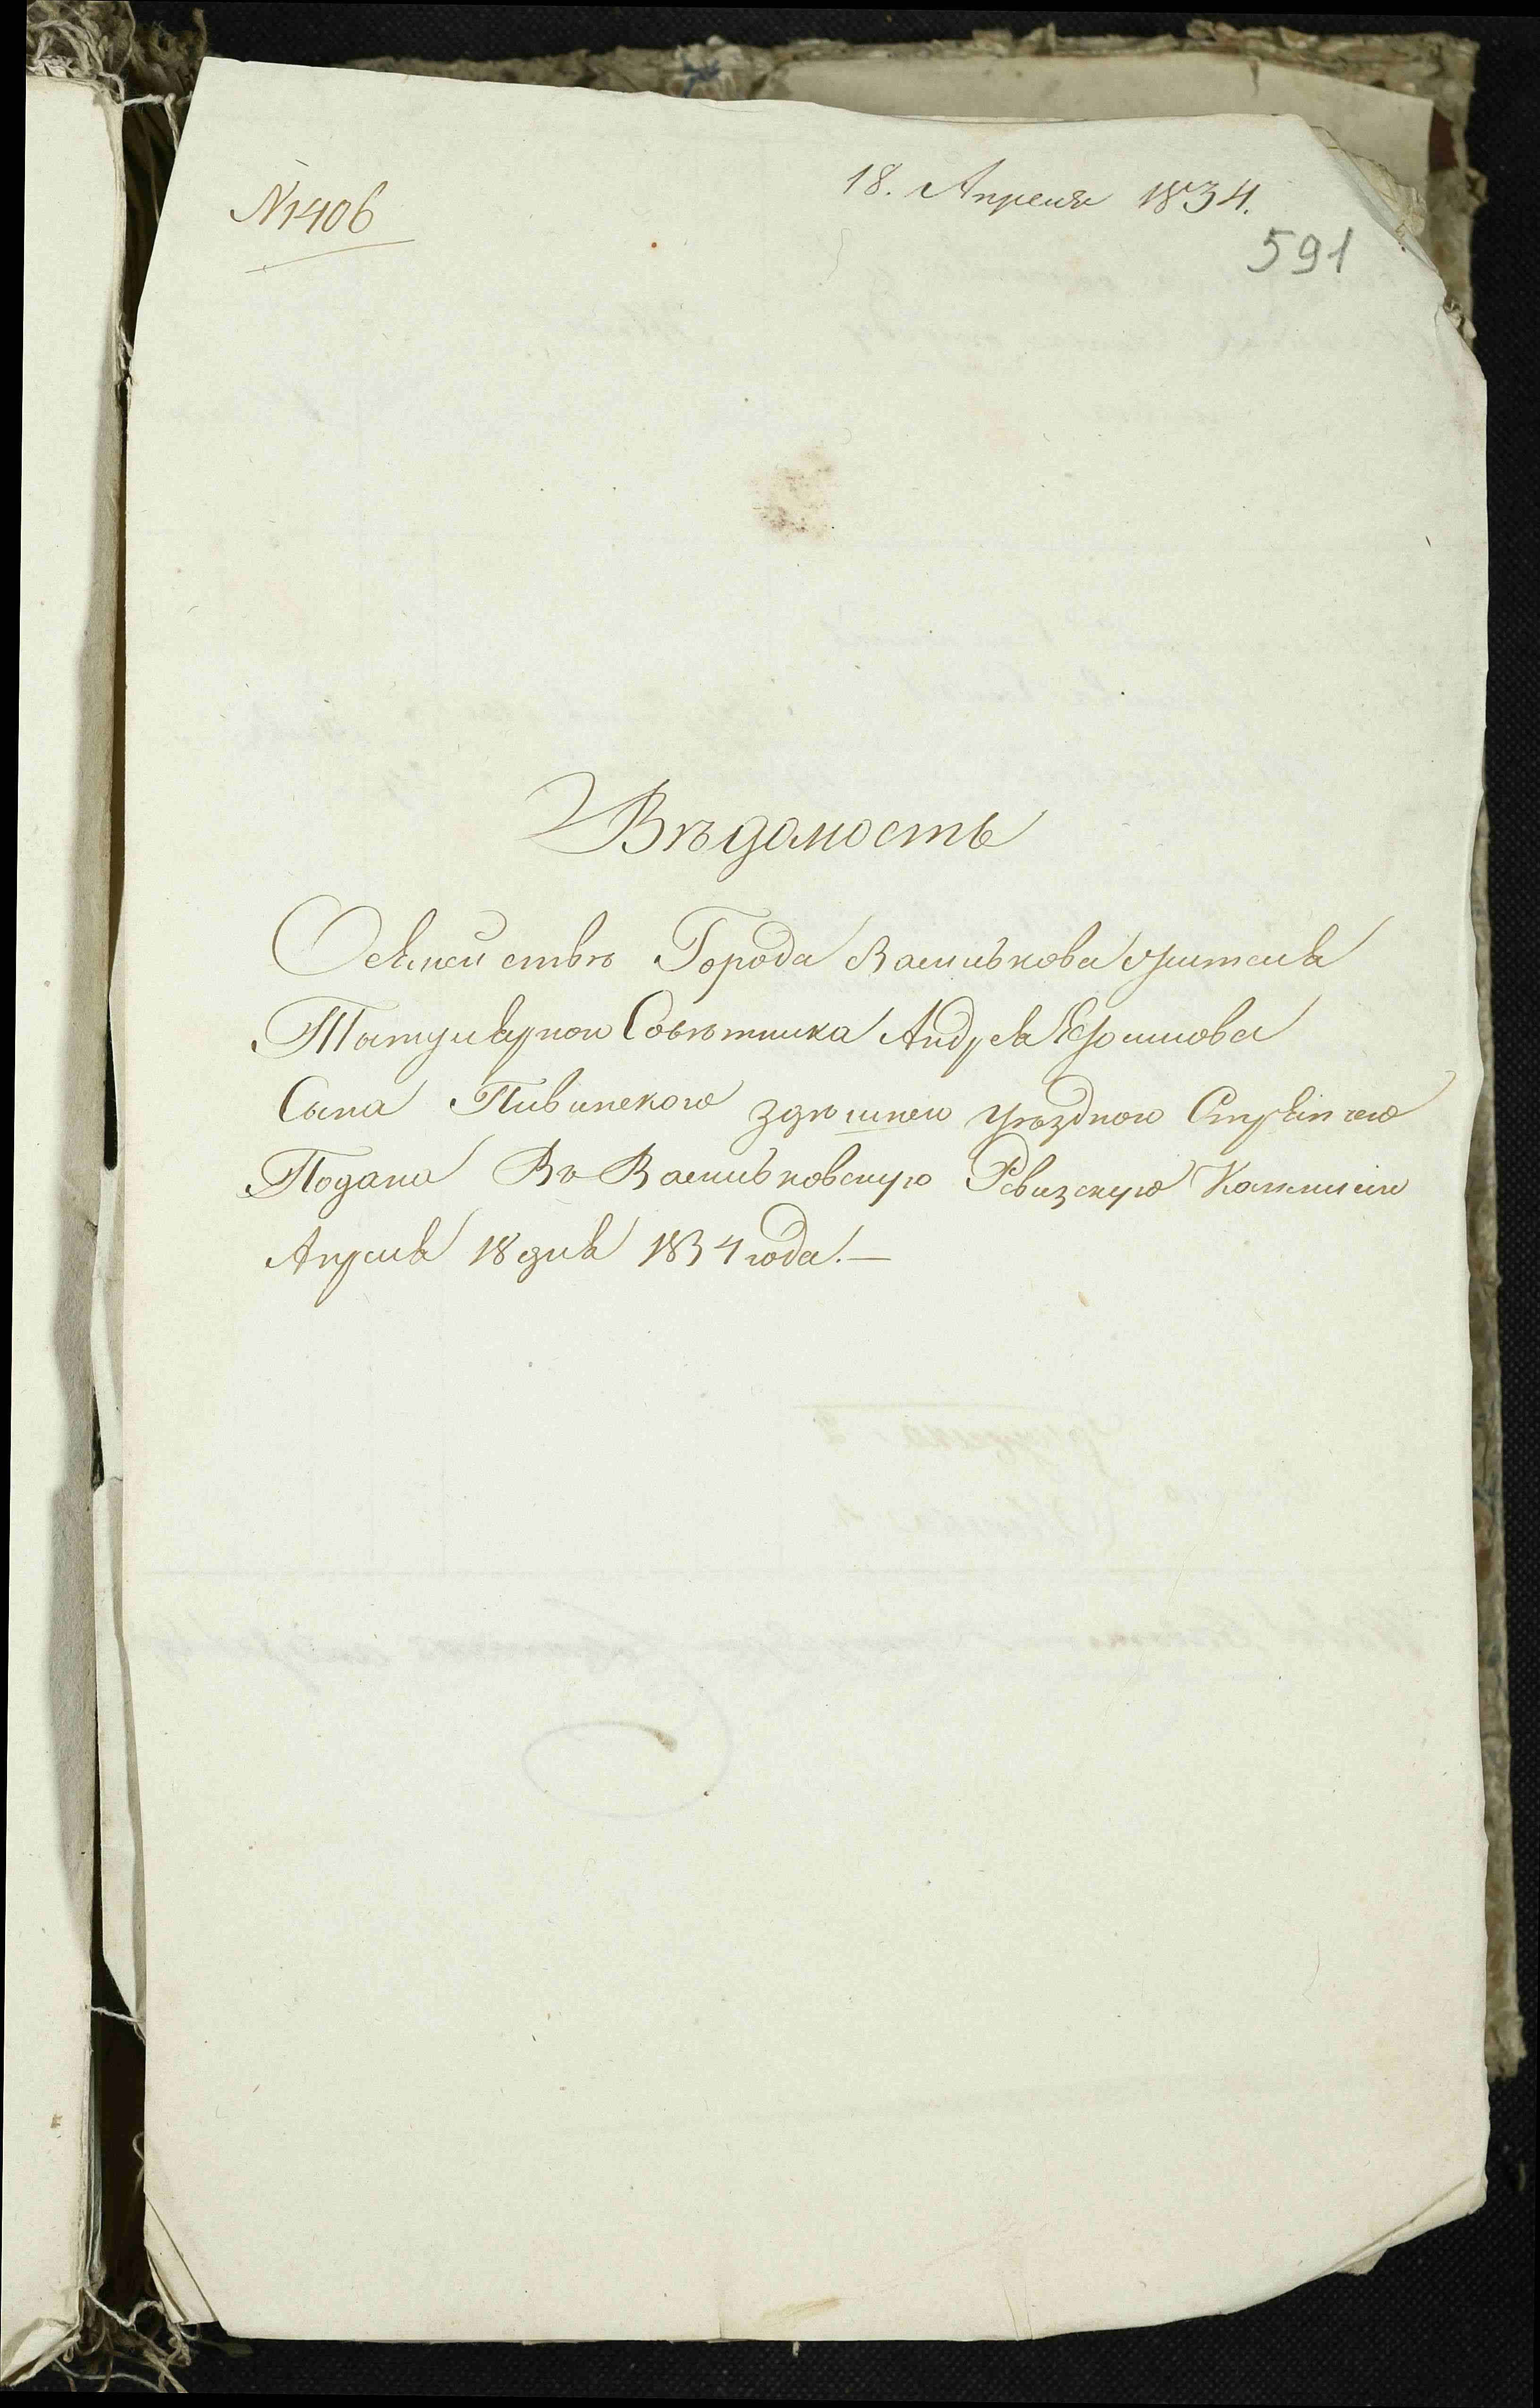 N1406
18. Апреля 1834.
591
Вѣдомость
О семействѣ Города Василькова жителя
Титулярного Совѣтника Андрея Ефимова
Сына Пивинского здѣшнего уѣздного Стряпчего
Подана Въ Васильковскую Ревизскую Коммисию
Апреля 18 дня 1834 года.—